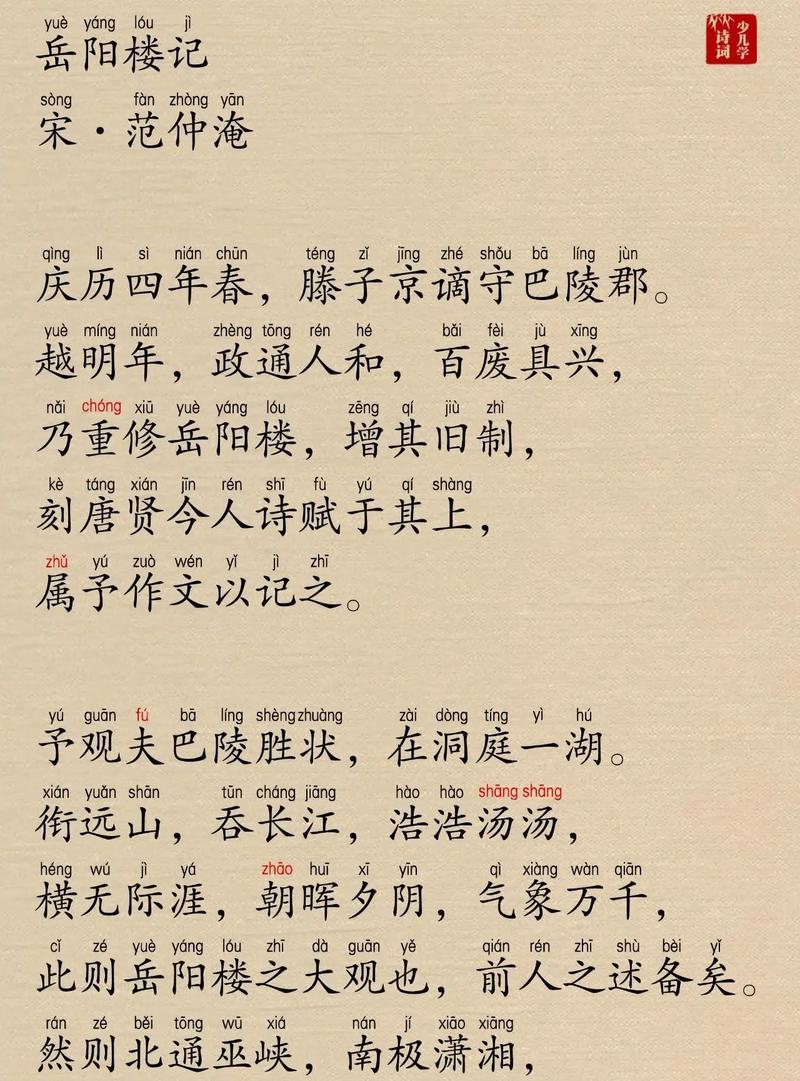 yuè yáng lóu jì
岳阳楼记
sòng fàn zhòng yān
宋·范仲淹
少儿学
诗词
qìng lì sì nián chūn téng zǐ jīng zhé shǒu bā líng jùn
庆历四年春，滕子京谪守巴陵郡。
yuè míng nián zhèng tōng rén hé bǎi fèi jù xīng
越明年，政通人和，百废具兴，
nǎi chóng xiū yuè yáng lóu zēng qí jiù zhì
乃重修岳阳楼，增其旧制，
kè táng xián jīn rén shī fù yú qí shàng
刻唐贤今人诗赋于其上，
zhǔ yú zuò wén yǐ jì zhī
属予作文以记之。
yú guān fú bā líng shèng zhuàng zài dòng tíng yì hú
予观夫巴陵胜状，在洞庭一湖。
xián yuǎn shān tūn cháng jiāng hào hào shāng shāng
衔远山，吞长江，浩浩汤汤，
héng wú jì yá zhāo huī xī yīn qì xiàng wàn qiān
横无际涯，朝晖夕阴，气象万千，
cǐ zé yuè yáng lóu zhī dà guān yě qián rén zhī shù bèi yǐ
此则岳阳楼之大观也，前人之述备矣。
rán zé běi tōng wū xiá nán jí xiāo xiāng
然则北通巫峡，南极潇湘，